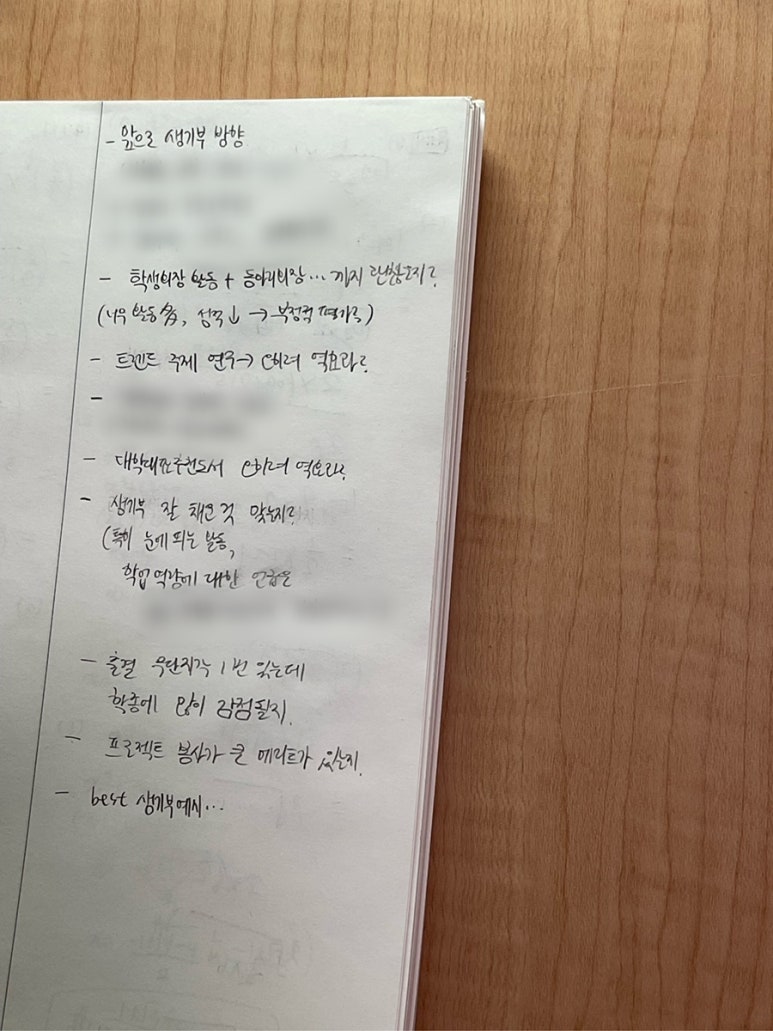 - 앞으로 생기부 방향
- 학생회장 활동 + 동아리회장... 까지 괜찮은지?
(너무 활동 多, 성적↓ → 부정적 평가?)
- 트렌드 주제 연구→ 오히려 역효과?
-
- 대학대표추천도서 오히려 역효과?
- 생기부 잘 채운 것 맞는지?
(특히 눈에 띄는 활동,
학업역량에 대한 언급은
- 출결 무단지각 1번 있는데
학종에 많이 감점될지.
- 프로젝트 봉사가 큰 메리트가 있는지.
- best 생기부예시...